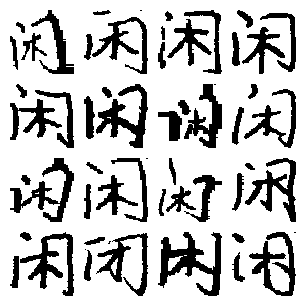 闲闲闲闲
闲闲闲闲
闲闲闲闲
闲闭闲闲